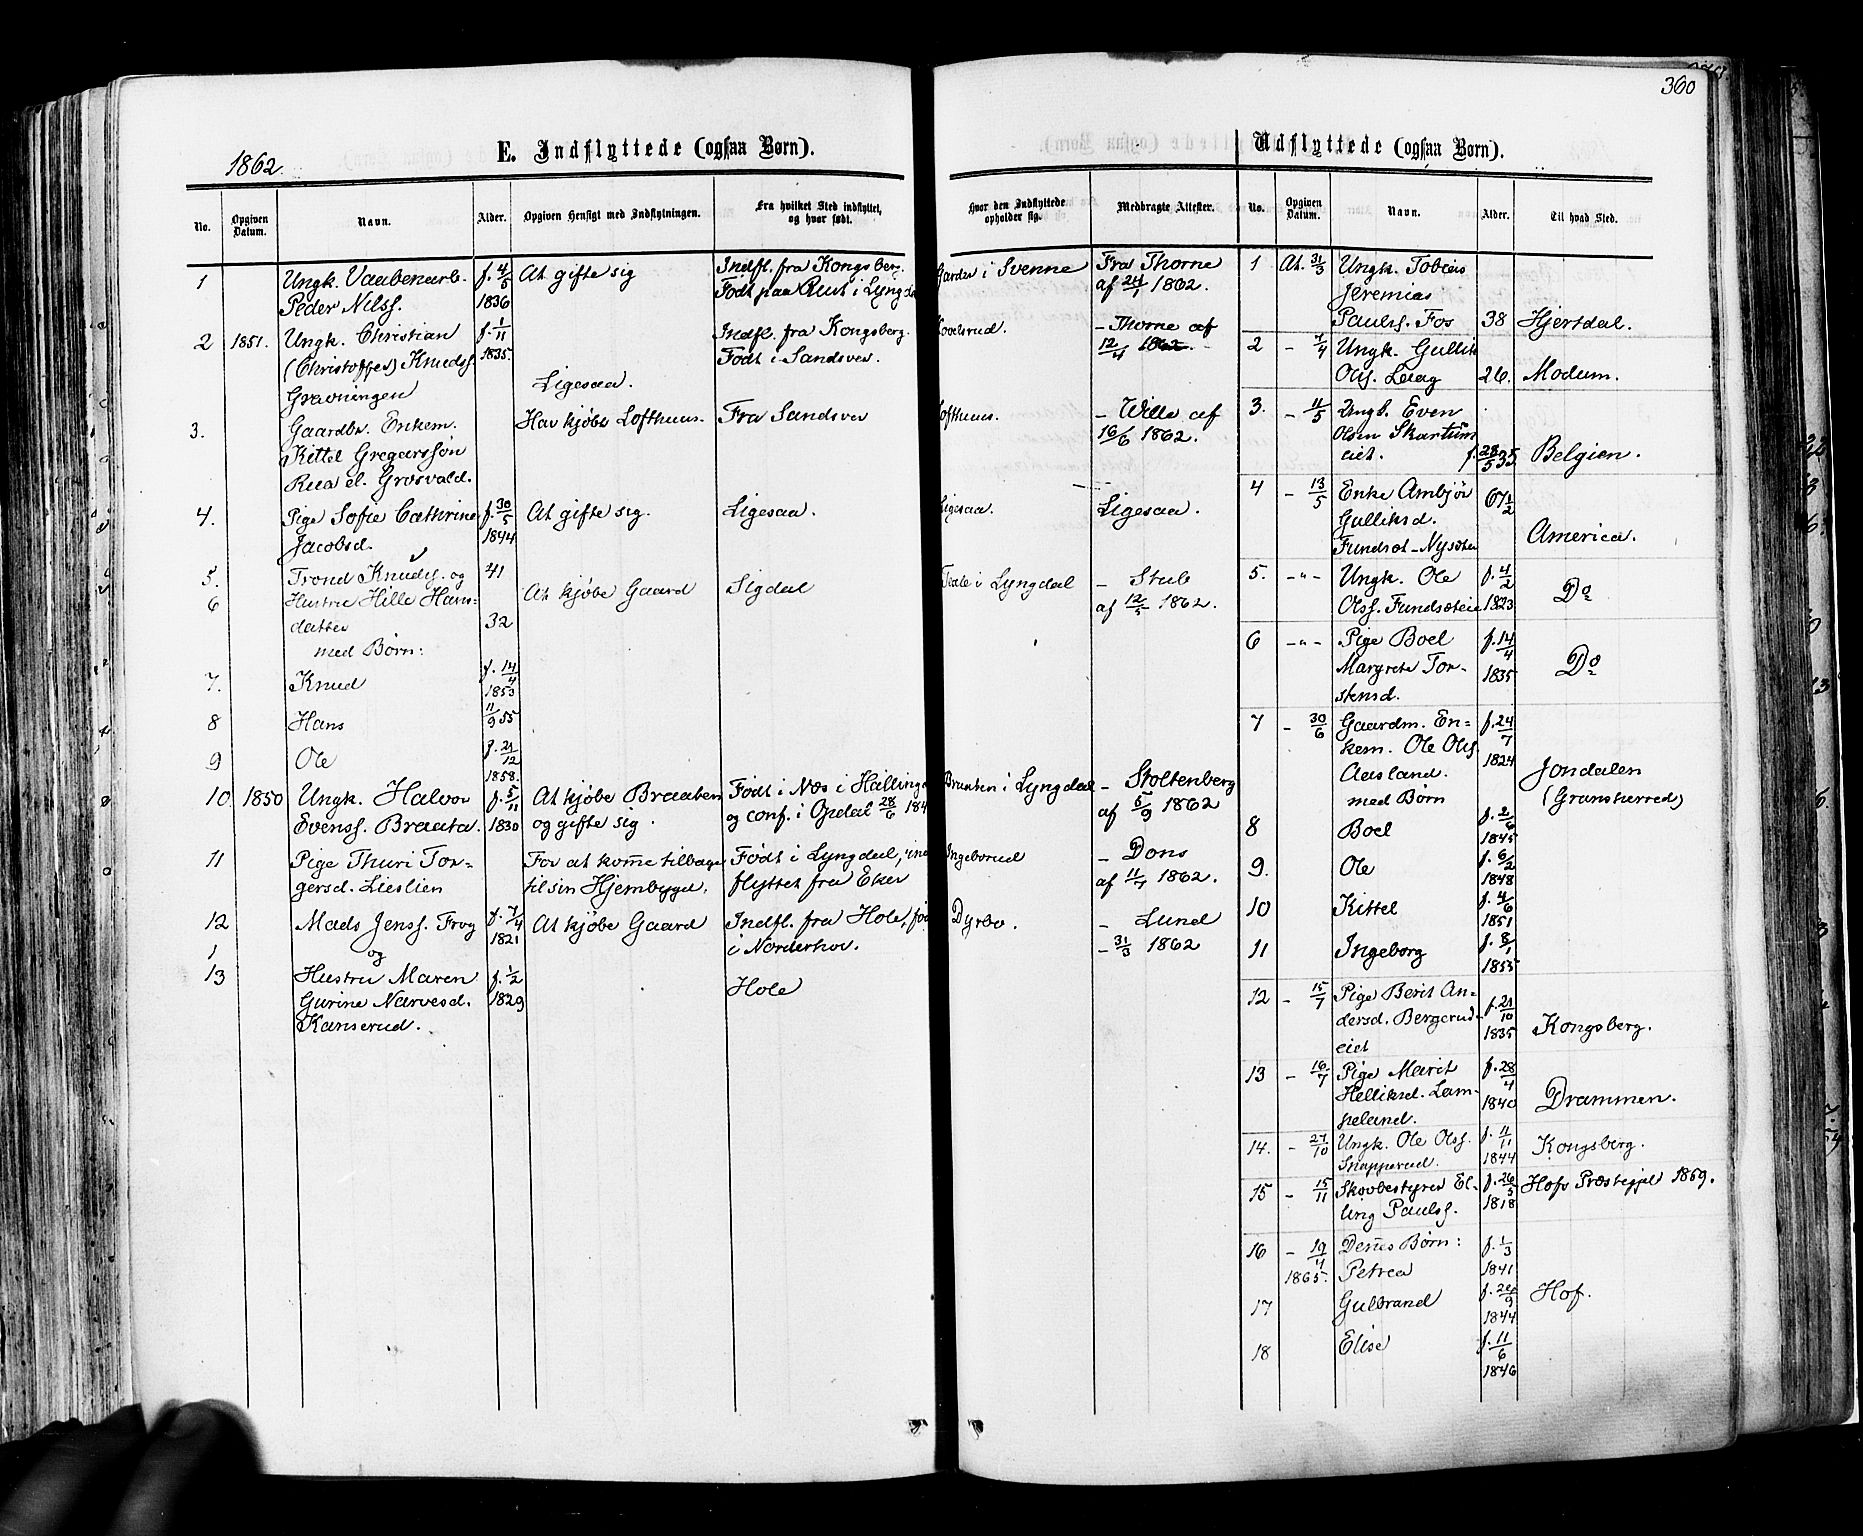 360
1862.
E. Indflyttede (ogsaa Børn).
No.
Opgiven Datum.
Navn.
Alder.
Opgiven Hensigt med Indflytningen.
Fra hvilket Sted indflyttet, og hvor født.
Hvor den Indflyttede opholder sig.
Medbragte Attester.
1 Ungk. Vaabenarb. f. 4/5 At gifte sig Indfl. fra Kongsberg. i Svenne Fra Thorne
Peder Nilss. 1836 Født paa i Lyngd af 24/1 1862.
2 1851. Ungk. Christian f. 1/11 Indfl. fra Kongsberg. – Thorne af
(Christoffer) Knuds. 1835. Født i Sandsver. 12/4 1862.
Gravningen Ligesaa.
3. Gaardbr. Enkem. Har kjøbt Lofthuus. Fra Sandsver ofthuus. – Wille af
Kittel Gregarssøn 16/6 1862.
Rua el. Grosvald.
4. Pige Sofie Cathrine f. 30/5 At gifte sig. Ligesaa. Ligesaa. Ligesaa.
Jacobsd. 1844
5. Trond Knuds. og 41 At kjøbe Gaard Sigdal i Lyngdal – Stub
6 Hustru Hille Hans- af 12/5 1862.
datter 32
med Børn:
7. Knud f. 14/4 1853
8 Hans 11/9 55
9 Ole f. 21/12 1858.
10 1850 Ungk. Halvor f. 5/11 At kjøbe Braaten Født i Næs i Hallingd Braaten i Lyngdal – Stoltenberg
Evenss. Braata. 1830 og gifte sig. og conf. i Opdal 28/6 184 af 5/9 1862
11 Pige Thuri Tor- For at komme tilbage Født i Lyngdal, ind Ingeborud – Dons
gersd. Lieslien til sin Hjembygd. flyttet fra Eker af 11/7 1862.
12 Mads Jenss. Frog f. 7/4 At kjøbe Gaard Indfl. fra Hole, fø Dyrbo. – Lund
og 1821 i Norderhov. – 31/3 1862
13 Hustru Maren f. 1/2 Hole
Gurine Narvesd. 1829
Hanserud.
Udflyttede (ogsaa Børn).
No.
Opgiven Datum.
Navn.
Alder.
Til hvad Sted.
1 At. 31/3 Ungk. Tobias
Jeremias
Paulss. Fos 38 Hjertdal.
2 – 4/4 Ungk. Gullik
Ols. Laag 26. Modum.
3. – 11/5 Ungk. Even
Olsen Skartum
eiet. f. 28/5 35 Belgien.
4 – 13/5 Enke Ambjør 67 1/2
Gulliksd.
Fundsæt-Nysæter America.
5. –"– Ungk. Ole f. 4/2 Do
Olss. Fundsæteie 1823
6 –"– Pige Boel f. 14/4
Margrete Tor- 1835 Do
stensd.
7 – 30/6 Gaardm. En- f. 24/7
kem. Ole Ols. 1824
Aasland. Jondalen
med Børn (Gransherred)
8 Boel f. 2/6 1845
9. Ole f. 6/2 1848
10 Kittel f. 4/6 1851
11 Ingeborg f. 8/1 1855
12 – 15/7 Pige Berit An- f. 21/10
dersd. Bergerud- 1835 Kongsberg.
eiet
13 – 16/7 Pige Marit f. 28/4
Helliksd. Lam- 1840 Drammen.
peland.
14. – 27/10 Ungk. Ole Olss. f. 11/11 Kongsberg.
Snapperud. 1844
15 – 15/11 Skovbestyrer El- f. 26/5 Hofs Præstegjel 1859.
ling Paulss. 1818
16 – 19/4 Dennes Børn: f. 1/3
1865. Petrea 1841
17 Gulbrand f. 20/9 1844 Hof.
18 Elise f. 11/6 1846